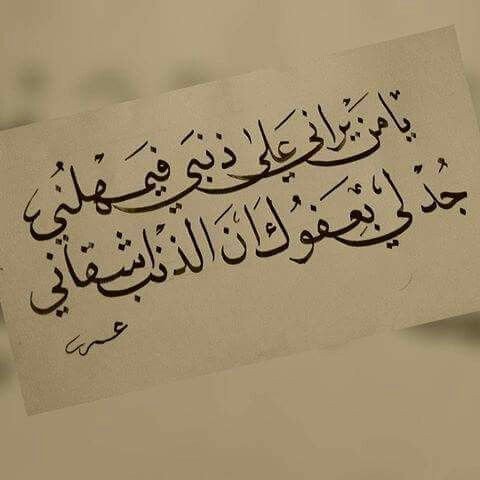 يا من يَراني عَلى ذنبي فيمهلُني
جُد لي بعَفوك انَ الذنب اشقاني